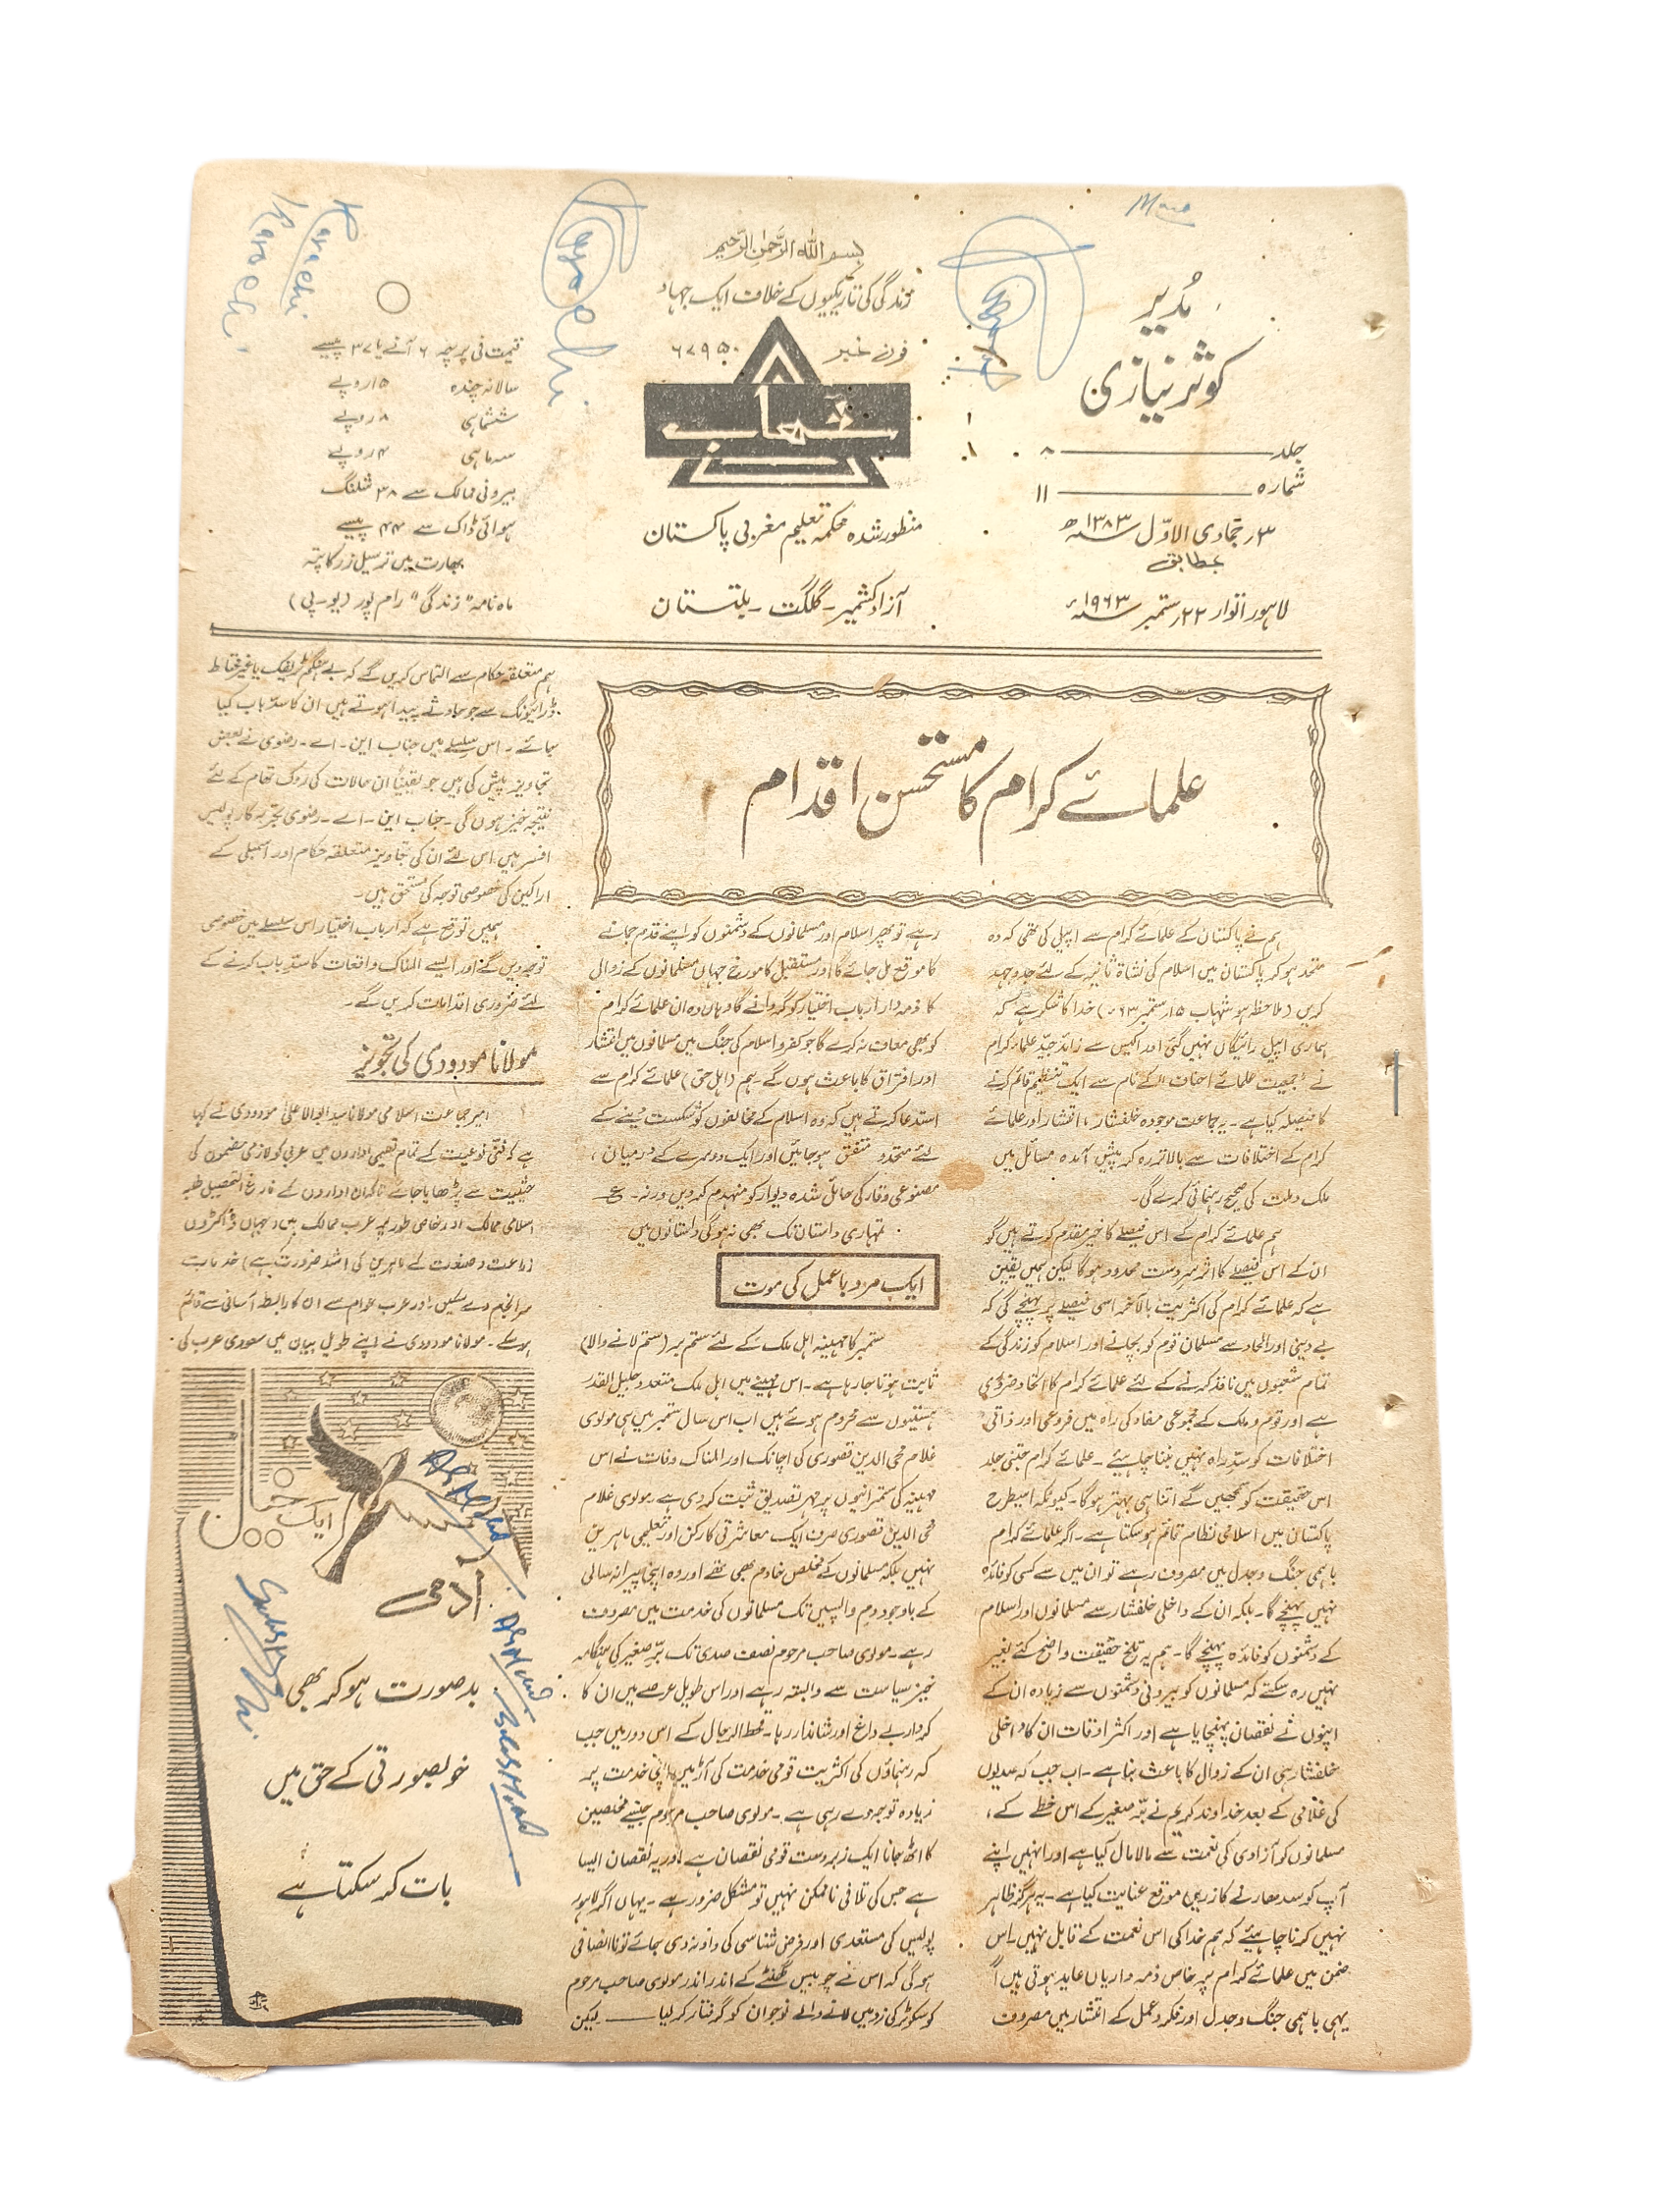 بسم اللہ الرحمٰن الرحیم
زندگی کی تاریکیوں کے خلاف ایک جہاد
فون نمبر ۶۷۹۵۰
شہاب
منظور شدہ محکمہ تعلیم مغربی پاکستان
آزاد کشمیر - گلگت - بلتستان
مُدیر
کوثر نیازی
جلد ۸
شمارہ ۱۱
۳ر جمادی الاوّل ۱۳۸۳ھ
بمطابق
لاہور اتوار ۲۲ر ستمبر ۱۹۶۳ء
قیمت فی پرچہ ۶ آنے یا ۳۷ پیسے
سالانہ چندہ ۱۵ روپے
ششماہی ۸ روپے
سہ ماہی ۴ روپے
بیرونی ممالک سے ۳۸ شلنگ
ہوائی ڈاک سے ۴۴ پیسے
بھارت میں ترسیل زر کا پتہ
ماہ نامہ "زندگی" رام پور (یو-پی)
Karachi
Karachi
Karachi
علمائے کرام کا مستحسن اقدام
ہم نے پاکستان کے علمائے کرام سے اپیل کی تھی کہ وہ
متحد ہو کر پاکستان میں اسلام کی نشاۃ ثانیہ کے لئے جدوجہد
کریں (ملاحظہ ہو شہاب ۱۵ر ستمبر ۶۳ء) خدا کا شکر ہے کہ
ہماری اپیل رائیگاں نہیں گئی اور اکیس سے زائد جیّد علماء کرام
نے "جمیعت علمائے احناف" کے نام سے ایک تنظیم قائم کرنے
کا فیصلہ کیا ہے۔ یہ جماعت موجودہ خلفشار، انتشار اور علمائے
کرام کے اختلافات سے بالاتر رہ کر پیش آمدہ مسائل میں
ملک و ملت کی صحیح رہنمائی کرے گی۔
ہم علمائے کرام کے اس فیصلے کا خیر مقدم کرتے ہیں گو
ان کے اس فیصلے کا اثر سرِدست محدود ہوگا لیکن ہمیں یقین
ہے کہ علمائے کرام کی اکثریت بالآخر اسی فیصلے پر پہنچے گی کہ
بے دینی اور الحاد سے مسلمان قوم کو بچانے اور اسلام کو زندگی کے
تمام شعبوں میں نافذ کرنے کے لئے علمائے کرام کا اتحاد ضروری
ہے اور قوم و ملک کے مجموعی مفاد کی راہ میں فروعی اور ذاتی
اختلافات کو سدِّ راہ نہیں بننا چاہیئے۔ علمائے کرام جتنی جلد
اس حقیقت کو سمجھیں گے اتنا ہی بہتر ہوگا۔ کیونکہ اسیطرح
پاکستان میں اسلامی نظام قائم ہو سکتا ہے۔ اگر علمائے کرام
باہمی جنگ و جدل میں مصروف رہے تو ان میں سے کسی کو فائدہ
نہیں پہنچے گا۔ بلکہ ان کے داخلی خلفشار سے مسلمانوں اور اسلام
کے دشمنوں کو فائدہ پہنچے گا۔ ہم یہ تلخ حقیقت واضح کئے بغیر
نہیں رہ سکتے کہ مسلمانوں کو بیرونی دشمنوں سے زیادہ ان کے
اپنوں نے نقصان پہنچایا ہے اور اکثر اوقات ان کا داخلی
خلفشار ہی ان کے زوال کا باعث بنا ہے۔ اب جب کہ صدیوں
کی غلامی کے بعد خداوند کریم نے برّ صغیر کے اس خطے کے،
مسلمانوں کو آزادی کی نعمت سے مالا مال کیا ہے اور انہیں اپنے
آپ کو سدھارنے کا زریں موقع عنایت کیا ہے۔ یہ ہرگز ظاہر
نہیں کرنا چاہیئے کہ ہم خدا کی اس نعمت کے قابل نہیں۔ اس
ضمن میں علمائے کرام پر خاص ذمہ داریاں عاید ہوتی ہیں اگر
یہی باہمی جنگ و جدل اور فکر و عمل کے انتشار میں مصروف
رہے تو پھر اسلام اور مسلمانوں کے دشمنوں کو اپنے قدم جمانے
کا موقع مل جائے گا اور مستقبل کا مورخ جہاں مسلمانوں کے زوال
کا ذمہ دار ارباب اختیار کو گردانے گا وہاں وہ ان علمائے کرام
کو بھی معاف نہ کرے گا جو کفر و اسلام کی جنگ میں مسلمانوں میں انتشار
اور افتراق کا باعث ہوں گے۔ ہم (اہل حق) علمائے کرام سے
استدعا کرتے ہیں کہ وہ اسلام کے مخالفوں کو شکست دینے کے
لئے متحد و متفق ہو جائیں اور ایک دوسرے کے درمیان،
مصنوعی وقار کی حائل شدہ دیوار کو منہدم کر دیں ورنہ۔ ع
تمہاری داستاں تک بھی نہ ہوگی داستانوں میں
ایک مردِ باعمل کی موت
ستمبر کا مہینہ اہل ملک کے لئے ستم بر (ستم لانے والا)
ثابت ہوتا جا رہا ہے۔ اس مہینے میں اہل ملک متعدد جلیل القدر
ہستیوں سے محروم ہوئے ہیں اب اس سال ستمبر میں ہی مولوی
غلام محی الدین قصوری کی اچانک اور المناک وفات نے اس
مہینہ کی ستمرانیوں پر مہر تصدیق ثبت کر دی ہے۔ مولوی غلام
محی الدین قصوری صرف ایک معاشرتی کارکن اور تعلیمی ماہر ہی
نہیں بلکہ مسلمانوں کے مخلص خادم بھی تھے اور وہ اپنی پیرانہ سالی
کے باوجود دم واپسیں تک مسلمانوں کی خدمت میں مصروف
رہے۔ مولوی صاحب مرحوم نصف صدی تک برّ صغیر کی ہنگامہ
خیز سیاست سے وابستہ رہے اور اس طویل عرصے میں ان کا
کردار بے داغ اور شاندار رہا۔ قحط الرجال کے اس دور میں جب
کہ رہنماؤں کی اکثریت قومی خدمت کی آڑ میں اپنی خدمت پر
زیادہ توجہ دے رہی ہے۔ مولوی صاحب مرحوم جیسے مخلصین
کا اٹھ جانا ایک زبردست قومی نقصان ہے اور یہ نقصان ایسا
ہے جس کی تلافی ناممکن نہیں تو مشکل ضرور ہے۔ یہاں اگر لاہور
پولیس کی مستعدی اور فرض شناسی کی داد نہ دی جائے تو ناانصافی
ہوگی کہ اس نے چوبیس گھنٹے کے اندر اندر مولوی صاحب مرحوم
کو سکوٹر کی زد میں لانے والے نوجوان کو گرفتار کر لیا — لیکن
ہم متعلقہ حکام سے التماس کریں گے کہ بے ہنگم ٹریفک یا غیر محتاط
ڈرائیونگ سے جو حادثے پیدا ہوتے ہیں ان کا سدّ باب کیا
جائے۔ اس سلسلے میں جناب این۔ اے۔ رضوی نے بعض
تجاویز پیش کی ہیں جو یقیناً ان حالات کی روک تھام کے لئے
نتیجہ خیز ہوں گی۔ جناب این۔ اے۔ رضوی تجربہ کار پولیس
افسر ہیں اس لئے ان کی تجاویز متعلقہ حکام اور اسمبلی کے
اراکین کی خصوصی توجہ کی مستحق ہیں۔
ہمیں توقع ہے کہ ارباب اختیار اس سلسلے میں خصوصی
توجہ دیں گے اور ایسے المناک واقعات کا سدّ باب کرنے کے
لئے ضروری اقدامات کریں گے۔
مولانا مودودی کی تجویز
امیر جماعت اسلامی مولانا سید ابوالاعلیٰ مودودی نے کہا
ہے کہ فنّی نوعیت کے تمام تعلیمی اداروں میں عربی کو لازمی مضمون کی
حیثیت سے پڑھایا جائے تاکہ ان اداروں کے فارغ التحصیل طلبہ
اسلامی ممالک اور خاص طور پر عرب ممالک میں (جہاں ڈاکٹروں
زراعت و صنعت کے ماہرین کی اشد ضرورت ہے) خدمات
سر انجام دے سکیں اور عرب عوام سے ان کا رابطہ آسانی سے قائم
ہو سکے۔ مولانا مودودی نے اپنے طویل بیان میں سعودی عرب کی
ایک خیال
آدمی
بدصورت ہو کر بھی
خوبصورتی کے حق میں
بات کر سکتا ہے